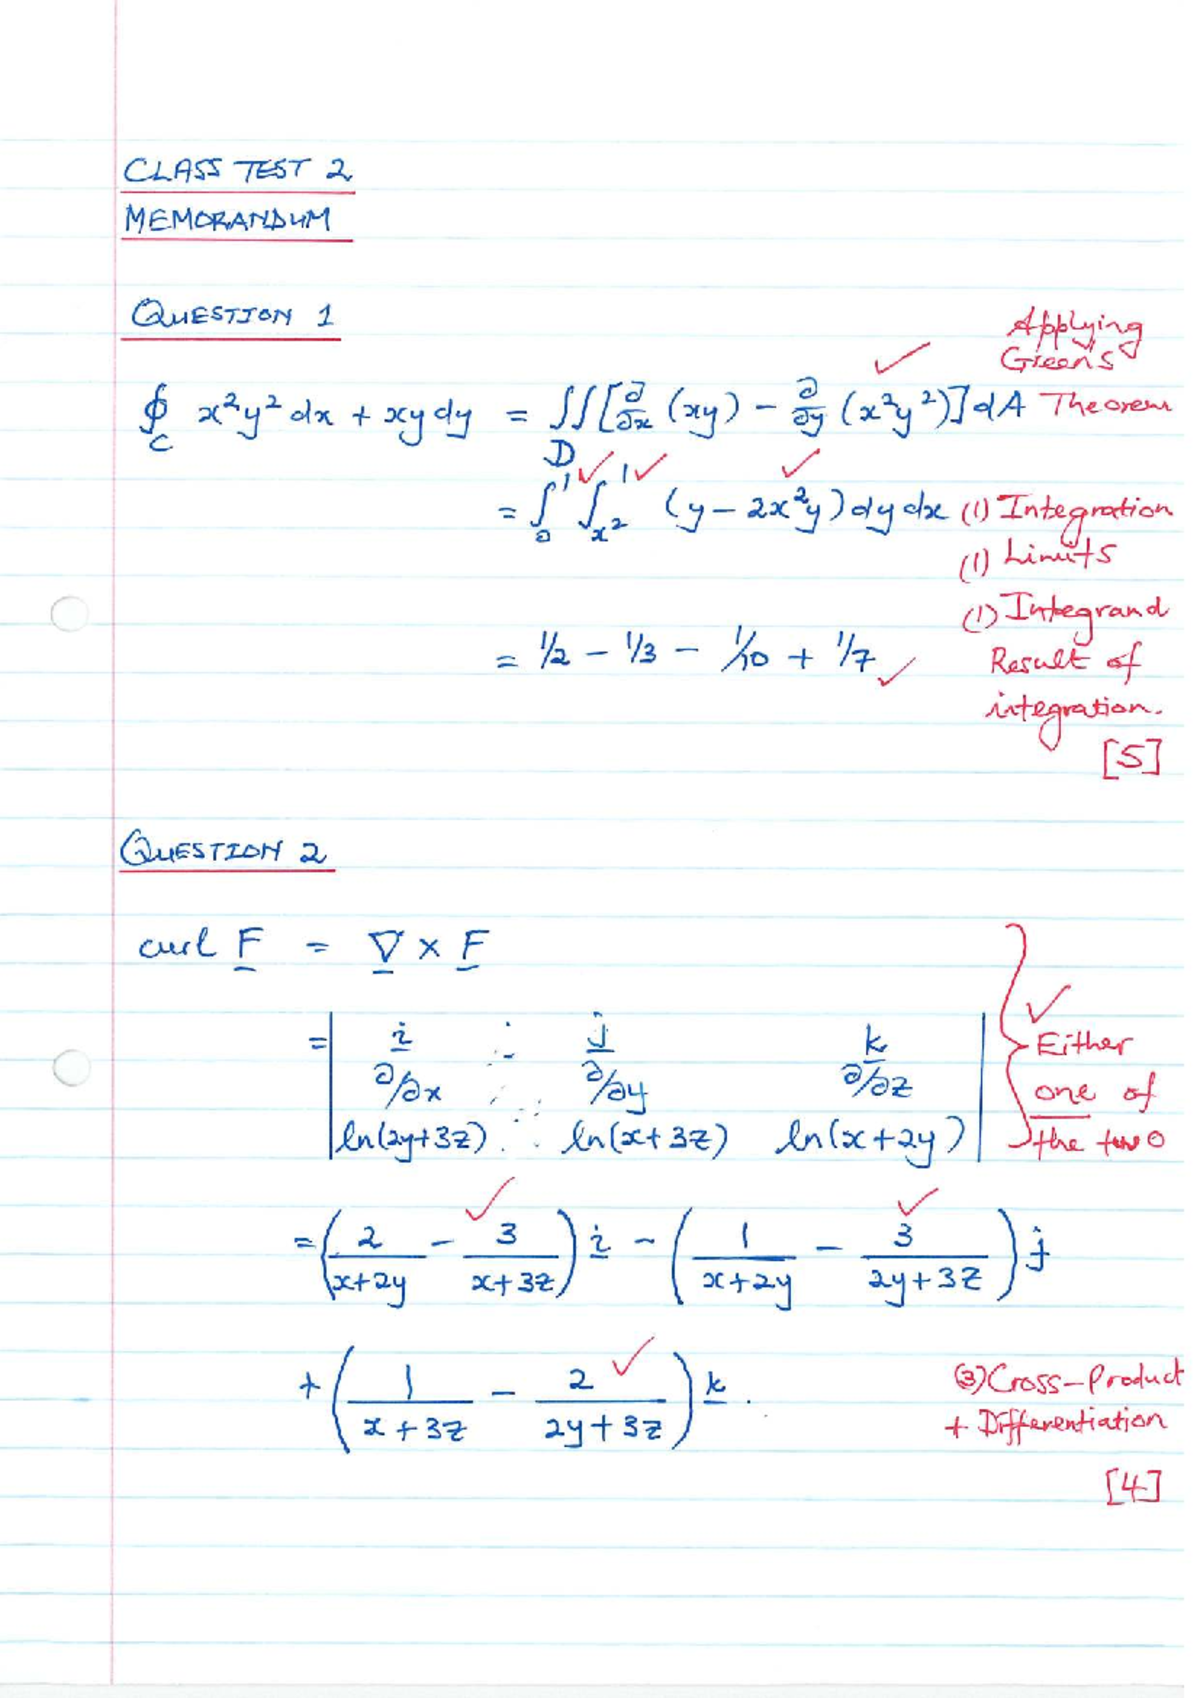 CLASS TEST 2
MEMORANDUM
QUESTION 1
Applying
Greens
∮_C x²y² dx + xy dy = ∬_D [∂/∂x (xy) − ∂/∂y (x²y²)] dA Theorem
= ∫₀¹ ∫_{x²}¹ (y − 2x²y) dy dx (1) Integration
(1) Limits
(1) Integrand
= 1/2 − 1/3 − 1/10 + 1/7 Result of
integration.
[5]
QUESTION 2
curl F = ∇ × F
= | i j k | ✓ Either
∂/∂x ∂/∂y ∂/∂z one of
ln(2y+3z) ln(x+3z) ln(x+2y) the two
= (2/(x+2y) − 3/(x+3z)) i − (1/(x+2y) − 3/(2y+3z)) j
+ (1/(x+3z) − 2/(2y+3z)) k. (3) Cross-Product
+ Differentiation
[4]